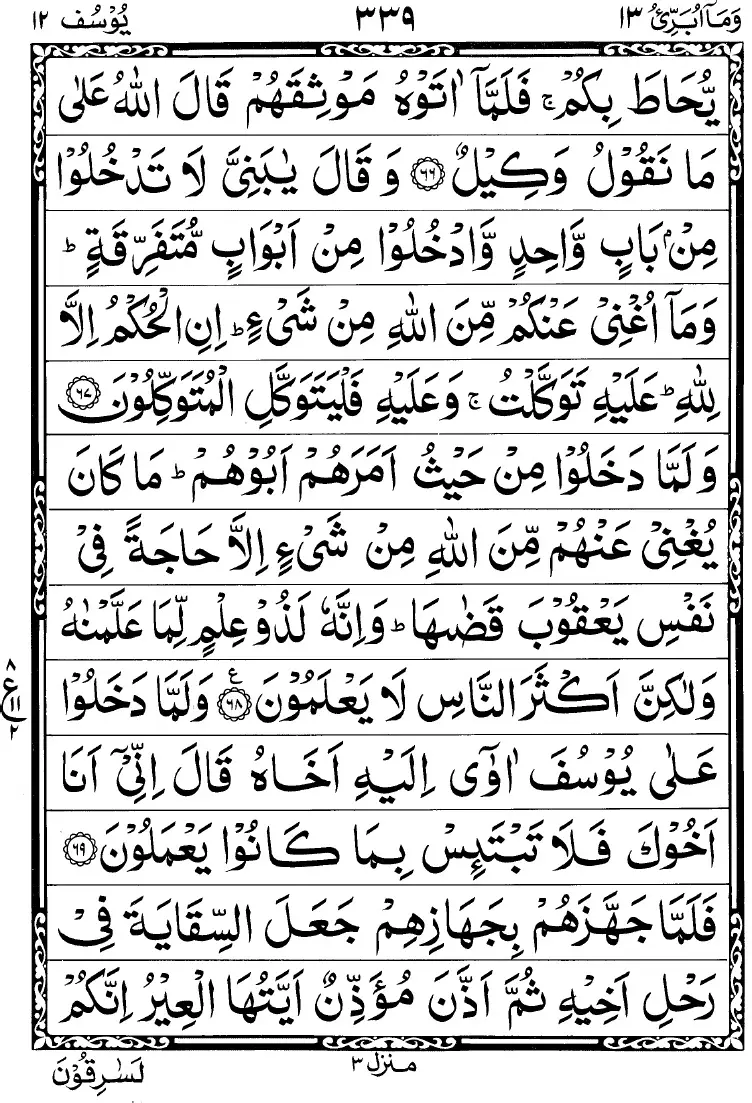 وَمَآ اُبَرِّئُ ١٣ ٣٣٩ يُوْسُف ١٢
يُّحَاطَ بِكُمْ ۚ فَلَمَّآ اٰتَوْهُ مَوْثِقَهُمْ قَالَ اللّٰهُ عَلٰى
مَا نَقُوْلُ وَكِيْلٌ ﴿۶۶﴾ وَ قَالَ يٰبَنِىَّ لَا تَدْخُلُوْا
مِنْۢ بَابٍ وَّاحِدٍ وَّادْخُلُوْا مِنْ اَبْوَابٍ مُّتَفَرِّقَةٍ ؕ
وَمَآ اُغْنِىْ عَنْكُمْ مِّنَ اللّٰهِ مِنْ شَىْءٍ ؕ اِنِ الْحُكْمُ اِلَّا
لِلّٰهِ ؕ عَلَيْهِ تَوَكَّلْتُ ۚ وَعَلَيْهِ فَلْيَتَوَكَّلِ الْمُتَوَكِّلُوْنَ ﴿۶۷﴾
وَلَمَّا دَخَلُوْا مِنْ حَيْثُ اَمَرَهُمْ اَبُوْهُمْ ؕ مَا كَانَ
يُغْنِىْ عَنْهُمْ مِّنَ اللّٰهِ مِنْ شَىْءٍ اِلَّا حَاجَةً فِىْ
نَفْسِ يَعْقُوْبَ قَضٰىهَا ؕ وَاِنَّهٗ لَذُوْ عِلْمٍ لِّمَا عَلَّمْنٰهُ
وَلٰكِنَّ اَكْثَرَ النَّاسِ لَا يَعْلَمُوْنَ ﴿۶۸﴾ ع وَلَمَّا دَخَلُوْا
٨ ع ١١ ٢
عَلٰى يُوْسُفَ اٰوٰٓى اِلَيْهِ اَخَاهُ قَالَ اِنِّىْٓ اَنَا
اَخُوْكَ فَلَا تَبْتَئِسْ بِمَا كَانُوْا يَعْمَلُوْنَ ﴿۶۹﴾
فَلَمَّا جَهَّزَهُمْ بِجَهَازِهِمْ جَعَلَ السِّقَايَةَ فِىْ
رَحْلِ اَخِيْهِ ثُمَّ اَذَّنَ مُؤَذِّنٌ اَيَّتُهَا الْعِيْرُ اِنَّكُمْ
منزل ٣ لَسٰرِقُوْنَ